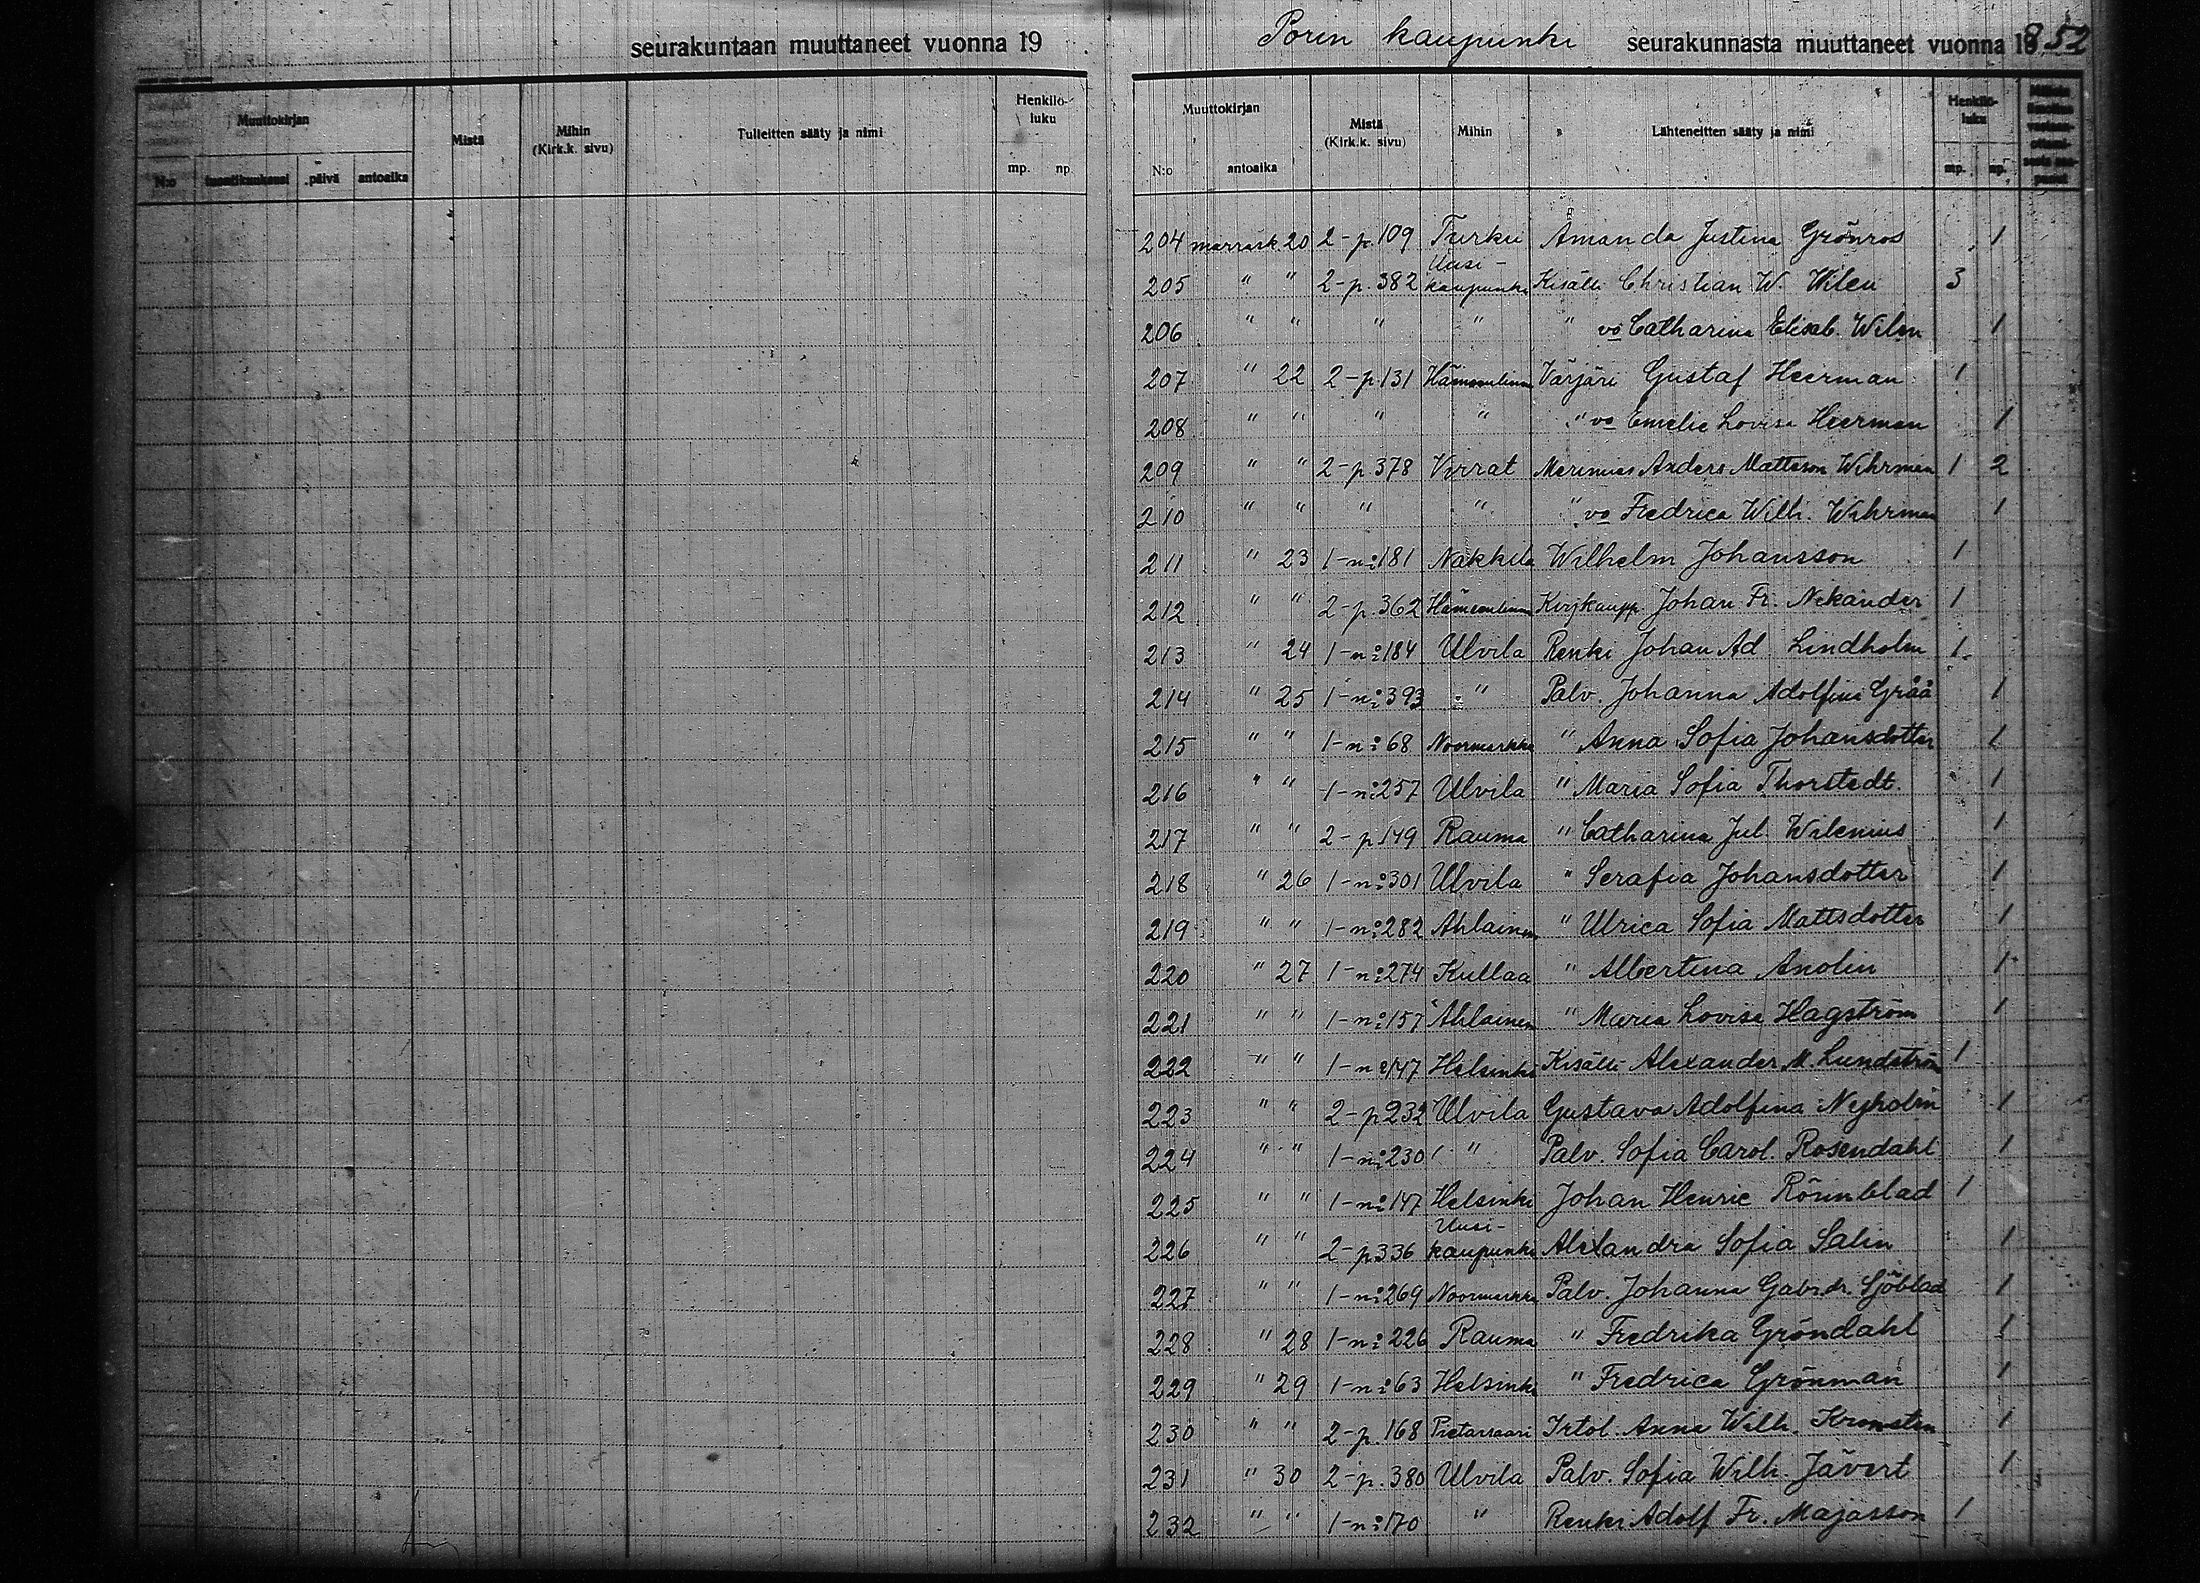 seurakuntaan muuttaneet vuonna 19
Muuttokirjan Mistä Mihin (Kirk.k. sivu) Tulleitten sääty ja nimi Henkilö-luku
N:o kuukausi päivä antoaika mp. np
Porin kaupunki seurakunnasta muuttaneet vuonna 1852
Muuttokirjan Mistä (Kirk.k. sivu) Mihin Lähteneitten sääty ja nimi Henkilö-luku
N:o antoaika mp. np.
204 marrask. 20 2-p. 109 Turku Amanda Justina Grönros 1
205 " " 2-p. 382 Uusi-kaupunki Kisälli Christian W. Wilen 3
206 " " " " " vo Catharina Elisab. Wilen 1
207 " 22 2-p 131 Hämeenlinna Värjäri Gustaf Heerman 1
208 " " " " " vo Emelie Lovisa Heerman 1
209 " " 2-p 378 Virrat Merimies Anders Mattsson Wihrman 1 2
210 " " " " " vo Fredrica Wilh. Wihrman 1
211 " 23 1-n:181 Nakkila Wilhelm Johansson 1
212 " " 2-p. 362 Hämeenlinna Kirjkaupp. Johan Fr. Nekander 1
213 " 24 1-n:184 Ulvila Renki Johan Ad Lindholm 1
214 " 25 1-n:393 " Palv. Johanna Adolfina Gråå 1
215 " " 1-n:68 Noormarkku " Anna Sofia Johansdotter 1
216 " " 1-n:257 Ulvila " Maria Sofia Thorstedt 1
217 " " 2-p 149 Rauma " Catharina Jul. Wilenius 1
218 " 26 1-n:301 Ulvila " Serafia Johansdotter 1
219 " " 1-n:282 Ahlainen " Ulrica Sofia Mattsdotter 1
220 " 27 1-n:274 Kullaa " Albertina Anolin 1
221 " " 1-n:157 Ahlainen " Maria Lovisa Hagström 1
222 " " 1-n:147 Helsinki Kisälli Alexander M. Lundström 1
223 " " 2-p 232 Ulvila Gustava Adolfina Nyholm 1
224 " " 1-n:230 " Palv. Sofia Carol. Rosendahl 1
225 " " 1-n:147 Helsinki Johan Henric Rönnblad 1
226 " " 2-p.336 Uusi-kaupunki Alexandra Sofia Salin 1
227 " " 1-n:269 Noormarkku Palv. Johanna Gabr.dr. Sjöblad 1
228 " 28 1-n:226 Rauma " Fredrika Gröndahl 1
229 " 29 1-n:63 Helsinki " Fredrica Grönman 1
230 " " 2-p. 168 Pietarsaari Irtol. Anna Wilh. 1
231 " 30 2-p. 380 Ulvila Palv. Sofia Wilh. Jävert 1
232 " " 1-n:170 " Renki Adolf Fr. Majasson 1